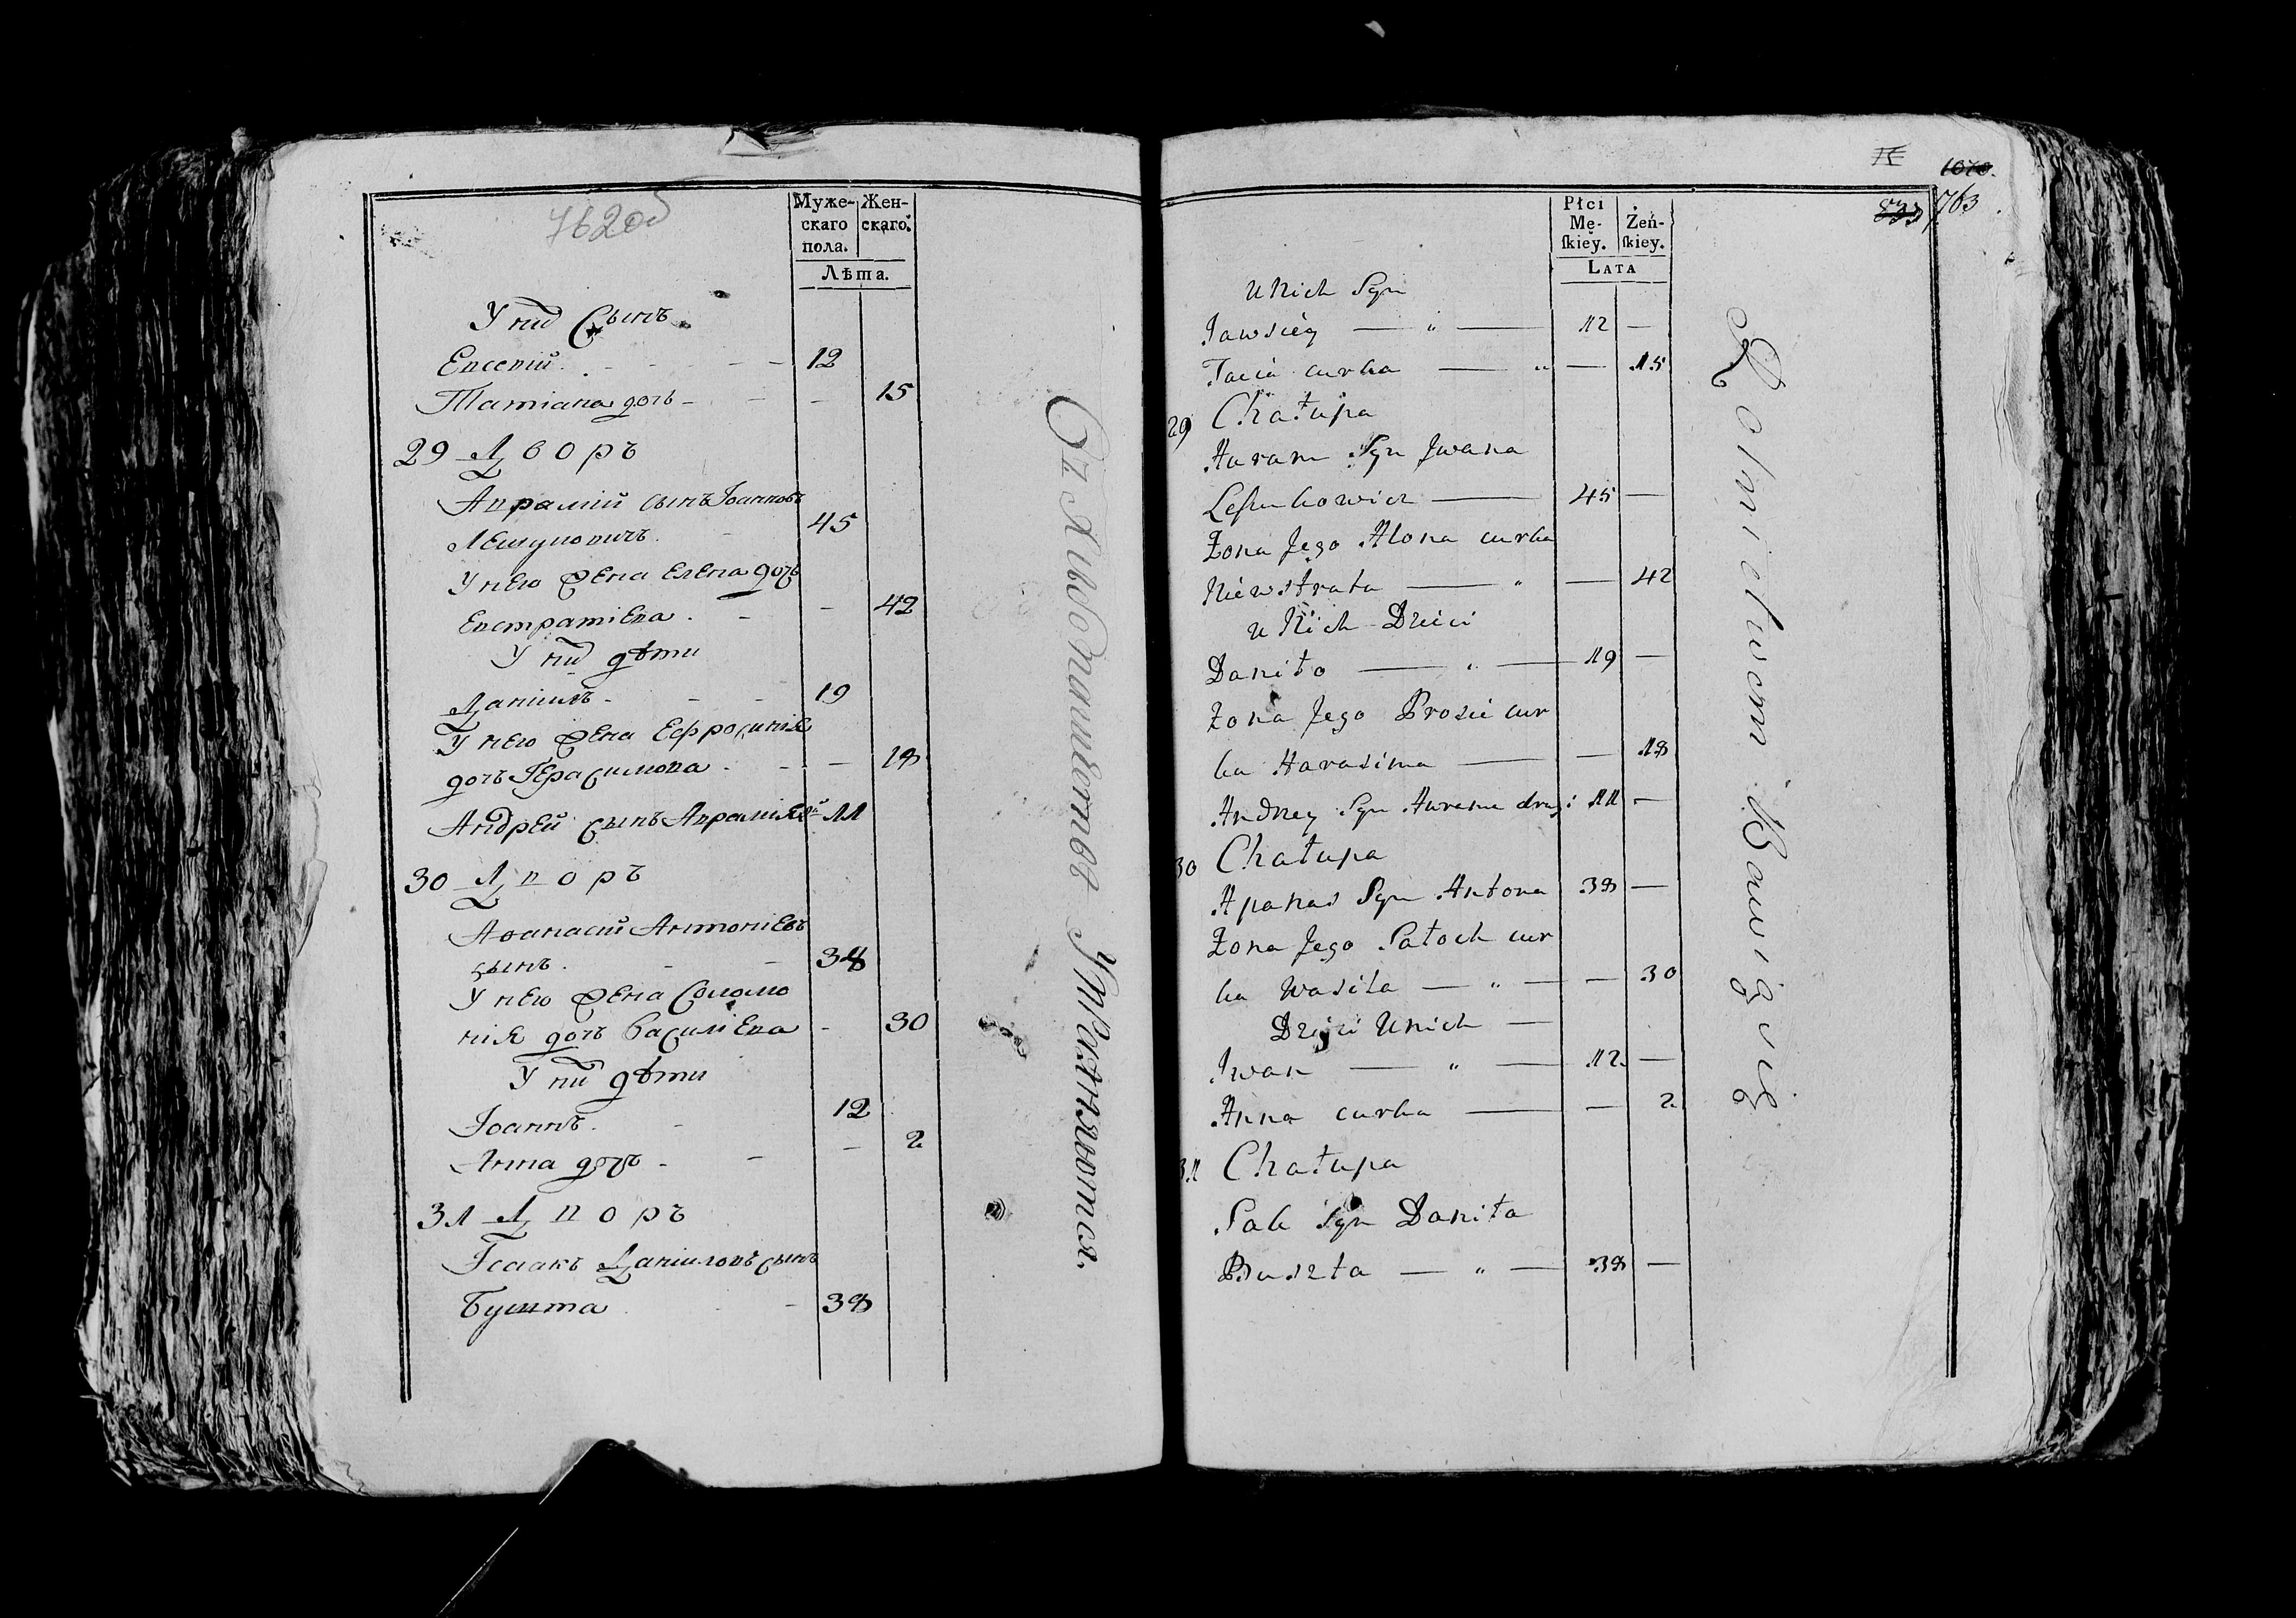 762об
Муже-
скаго
пола.
Жен-
скаго.
Лѣта.
У них Сынъ
Евсевий. 12
Татіана дочь - 15
29 Дворъ
Авраамий сынъ Іоанновъ
Лешуковичъ. 45
У него жена Елена дочь
Евстратіева. 42
У них дѣти
Даніилъ. 19
У него жена Ефросинія
дочь Герасимова. 18
Андрей сынъ Авраамія 11
30 Дворъ
Афанасий Антоніевъ
сынъ. 38
У него жена Соломо
нія дочь Василіева - 30
У них дѣти
Іоаннъ. 12
Анна дочь - 2
31 Дворъ
Ісаакъ Даніиловъ сынъ
Бушта 38
Отъ Хлѣбопашества Упражняются.
763
Płci
Mę-
ſkiey.
Żeń-
ſkiey.
LATA
U Nich Syn
Jawsiey — „ — 12 —
Tacia curka — „ — 15
29 Chałupa
Auram Syn Jwana
Leszukowicz — 45 —
Żona Jego Alona curka
Niewstrata — „ — 42
u Nich Dzieci
Daniło — „ — 19 —
Żona Jego Prosie cur
ka Harasima — — 18
Andrey Syn Aurama drugi 11 —
30 Chałupa
Apanas Syn Antona 38 —
Żona Jego Sałoch cur
ka Wasila — „ — — 30
Dzieci Unich —
Jwan — „ — 12 —
Anna curka — — 2
31 Chałupa
Sak Syn Daniła
Buszta — „ — 38 —
Rolnictwem Bawią się